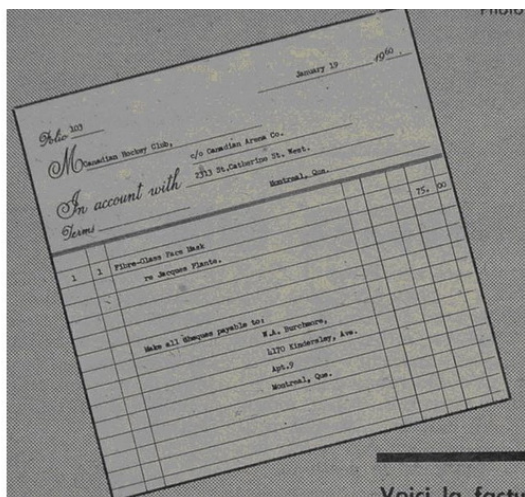 Photo
January 19 1960.
Folio 103
M Canadian Hockey Club,
c/o Canadian Arena Co.
In account with 2313 St.Catherine St. West.
Terms Montreal, Que.
1 1 Fibre-Glass Face Mask 75. 00
re Jacques Plante.
Make all Cheques payable to:
W.A. Burchmore,
4170 Kindersley, Ave.
Apt.9
Montreal, Que.
Voici la factu